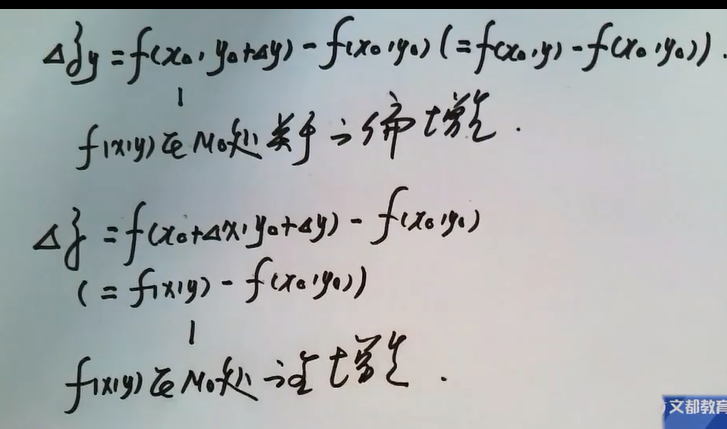 Δz_y = f(x₀, y₀+Δy) - f(x₀, y₀) (= f(x₀, y) - f(x₀, y₀)).
f(x,y)在M₀处关于y偏增量.
Δz = f(x₀+Δx, y₀+Δy) - f(x₀, y₀)
(= f(x,y) - f(x₀, y₀))
f(x,y)在M₀处的全增量.
文都教育